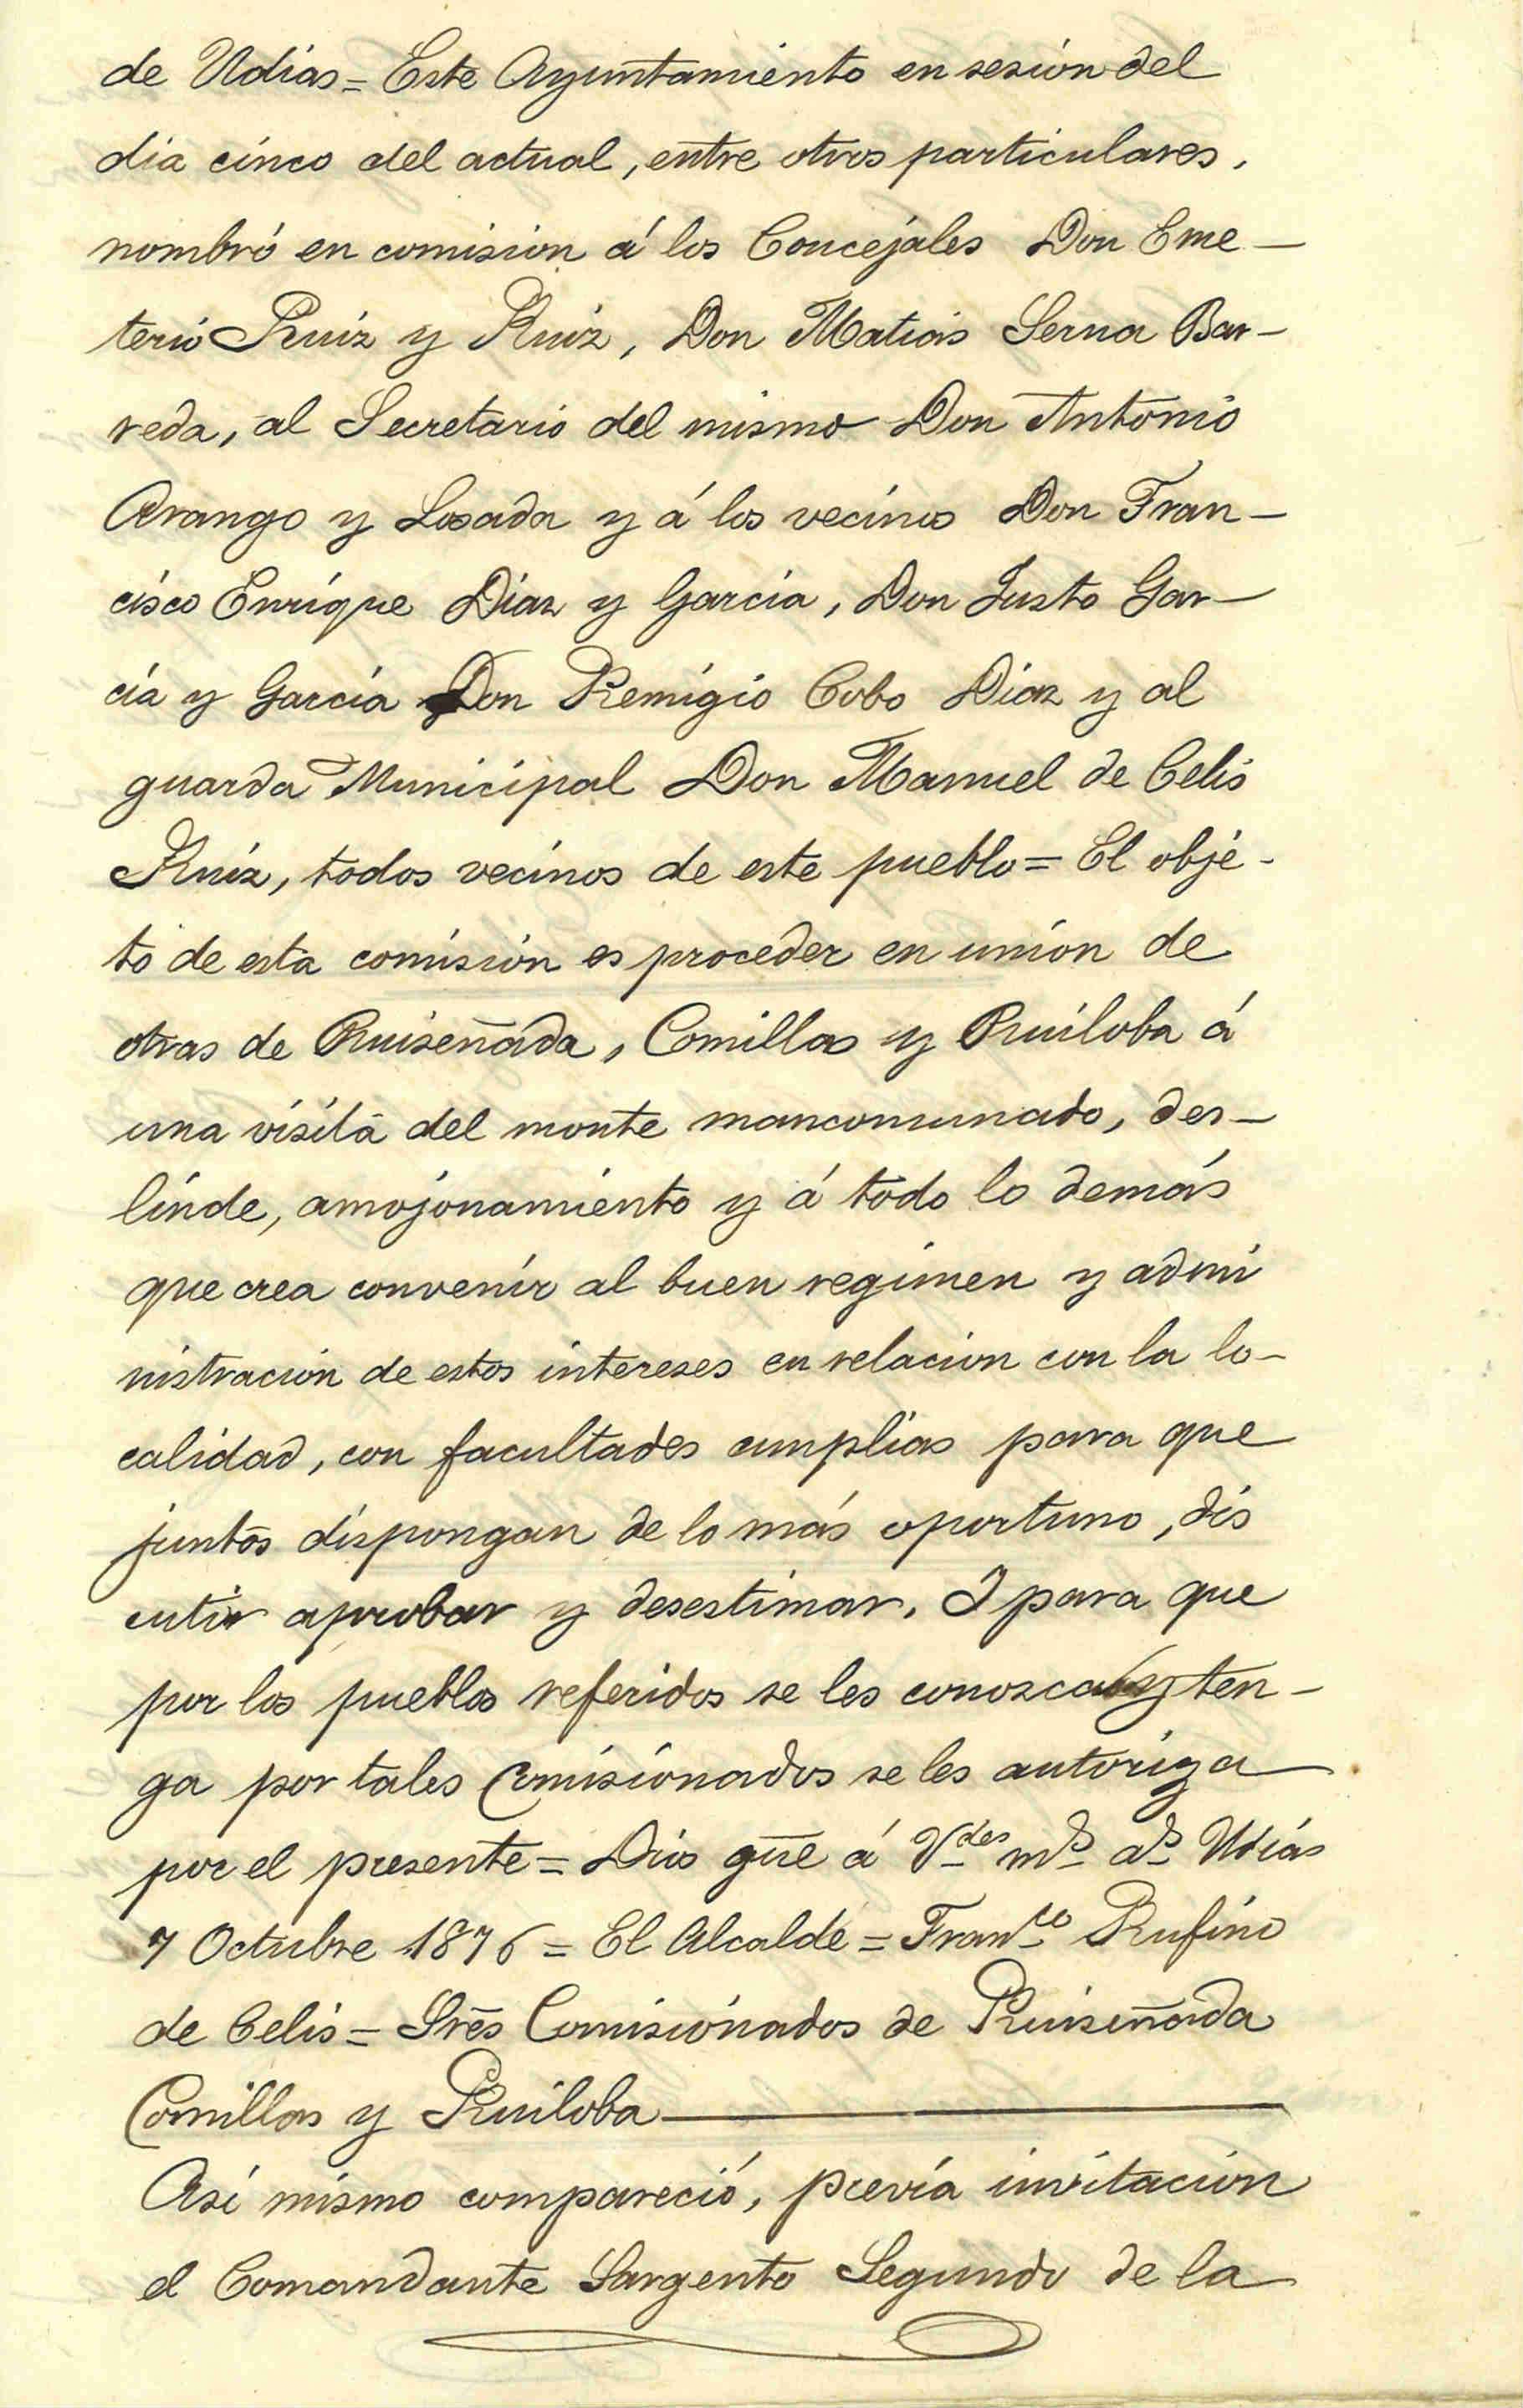 de Udias = Este Ayuntamiento en sesión del
dia cinco del actual, entre otros particulares,
nombró en comision á los Concejales Don Eme-
terio Ruiz y Ruiz, Don Matias Serna Bar-
reda, al Secretario del mismo Don Antonio
Arango y Losada y á los vecinos Don Fran-
cisco Enrique Diaz y Garcia, Don Justo Gar-
cía y García Don Remigio Cobo Diaz y al
guarda Municipal Don Manuel de Celis
Ruiz, todos vecinos de este pueblo = El obje-
to de esta comisión es proceder en unión de
otras de Ruiseñada, Comillas y Ruiloba á
una visita del monte mancomunado, des-
linde, amojonamiento y á todo lo demás
que crea convenir al buen regimen y admi
nistración de estos intereses en relacion con la lo-
calidad, con facultades amplias para que
juntos dispongan de lo más oportuno, dis
cutir aprobar y desestimar. I para que
por los pueblos referidos se les conozca y ten-
ga por tales Comisionados se les autoriza
por el presente = Dios gūe á V.des m.s a.s Udías
7 Octubre 1876 = El Alcalde = Fran.co Rufino
de Celis = Srēs Comisionados de Ruiseñada
Comillas y Ruiloba
Así mismo compareció, previa invitación
el Comandante Sargento Segundo de la